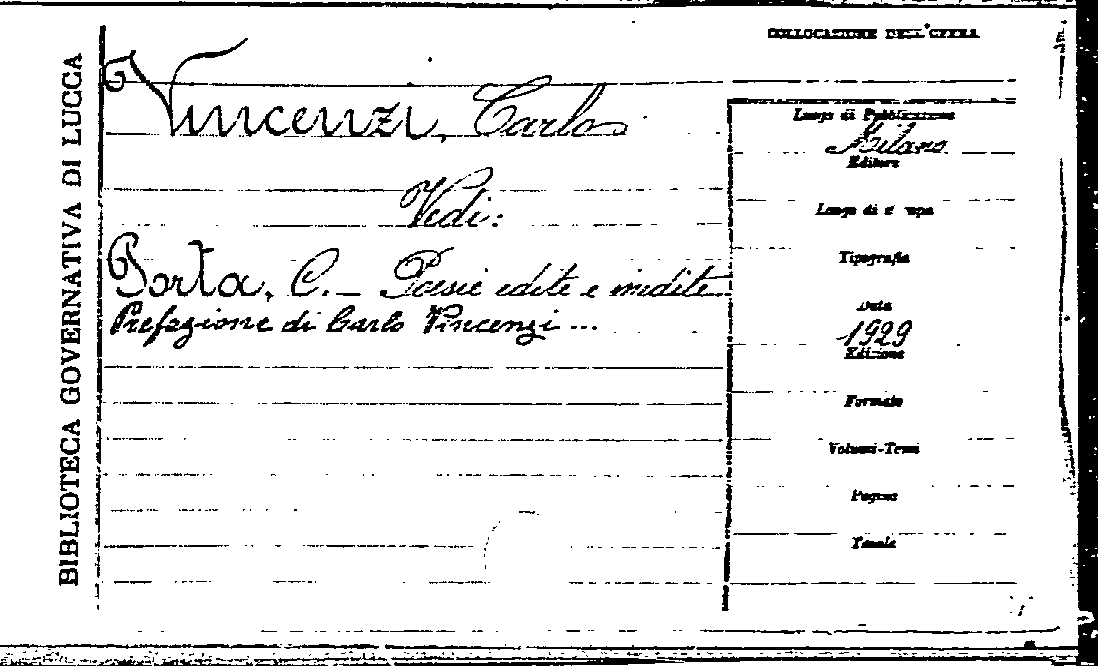 BIBLIOTECA GOVERNATIVA DI LUCCA
COLLOCAZIONE DELL'OPERA
Vincenzi, Carlo
Vedi:
Porta, C. — Poesie edite e inedite.
Prefazione di Carlo Vincenzi ...
Luogo di Pubblicazione
Milano
Editore
Luogo di
Tipografia
Data
1929
Edizione
Formato
Volumi-Tomi
Pagine
Tavole